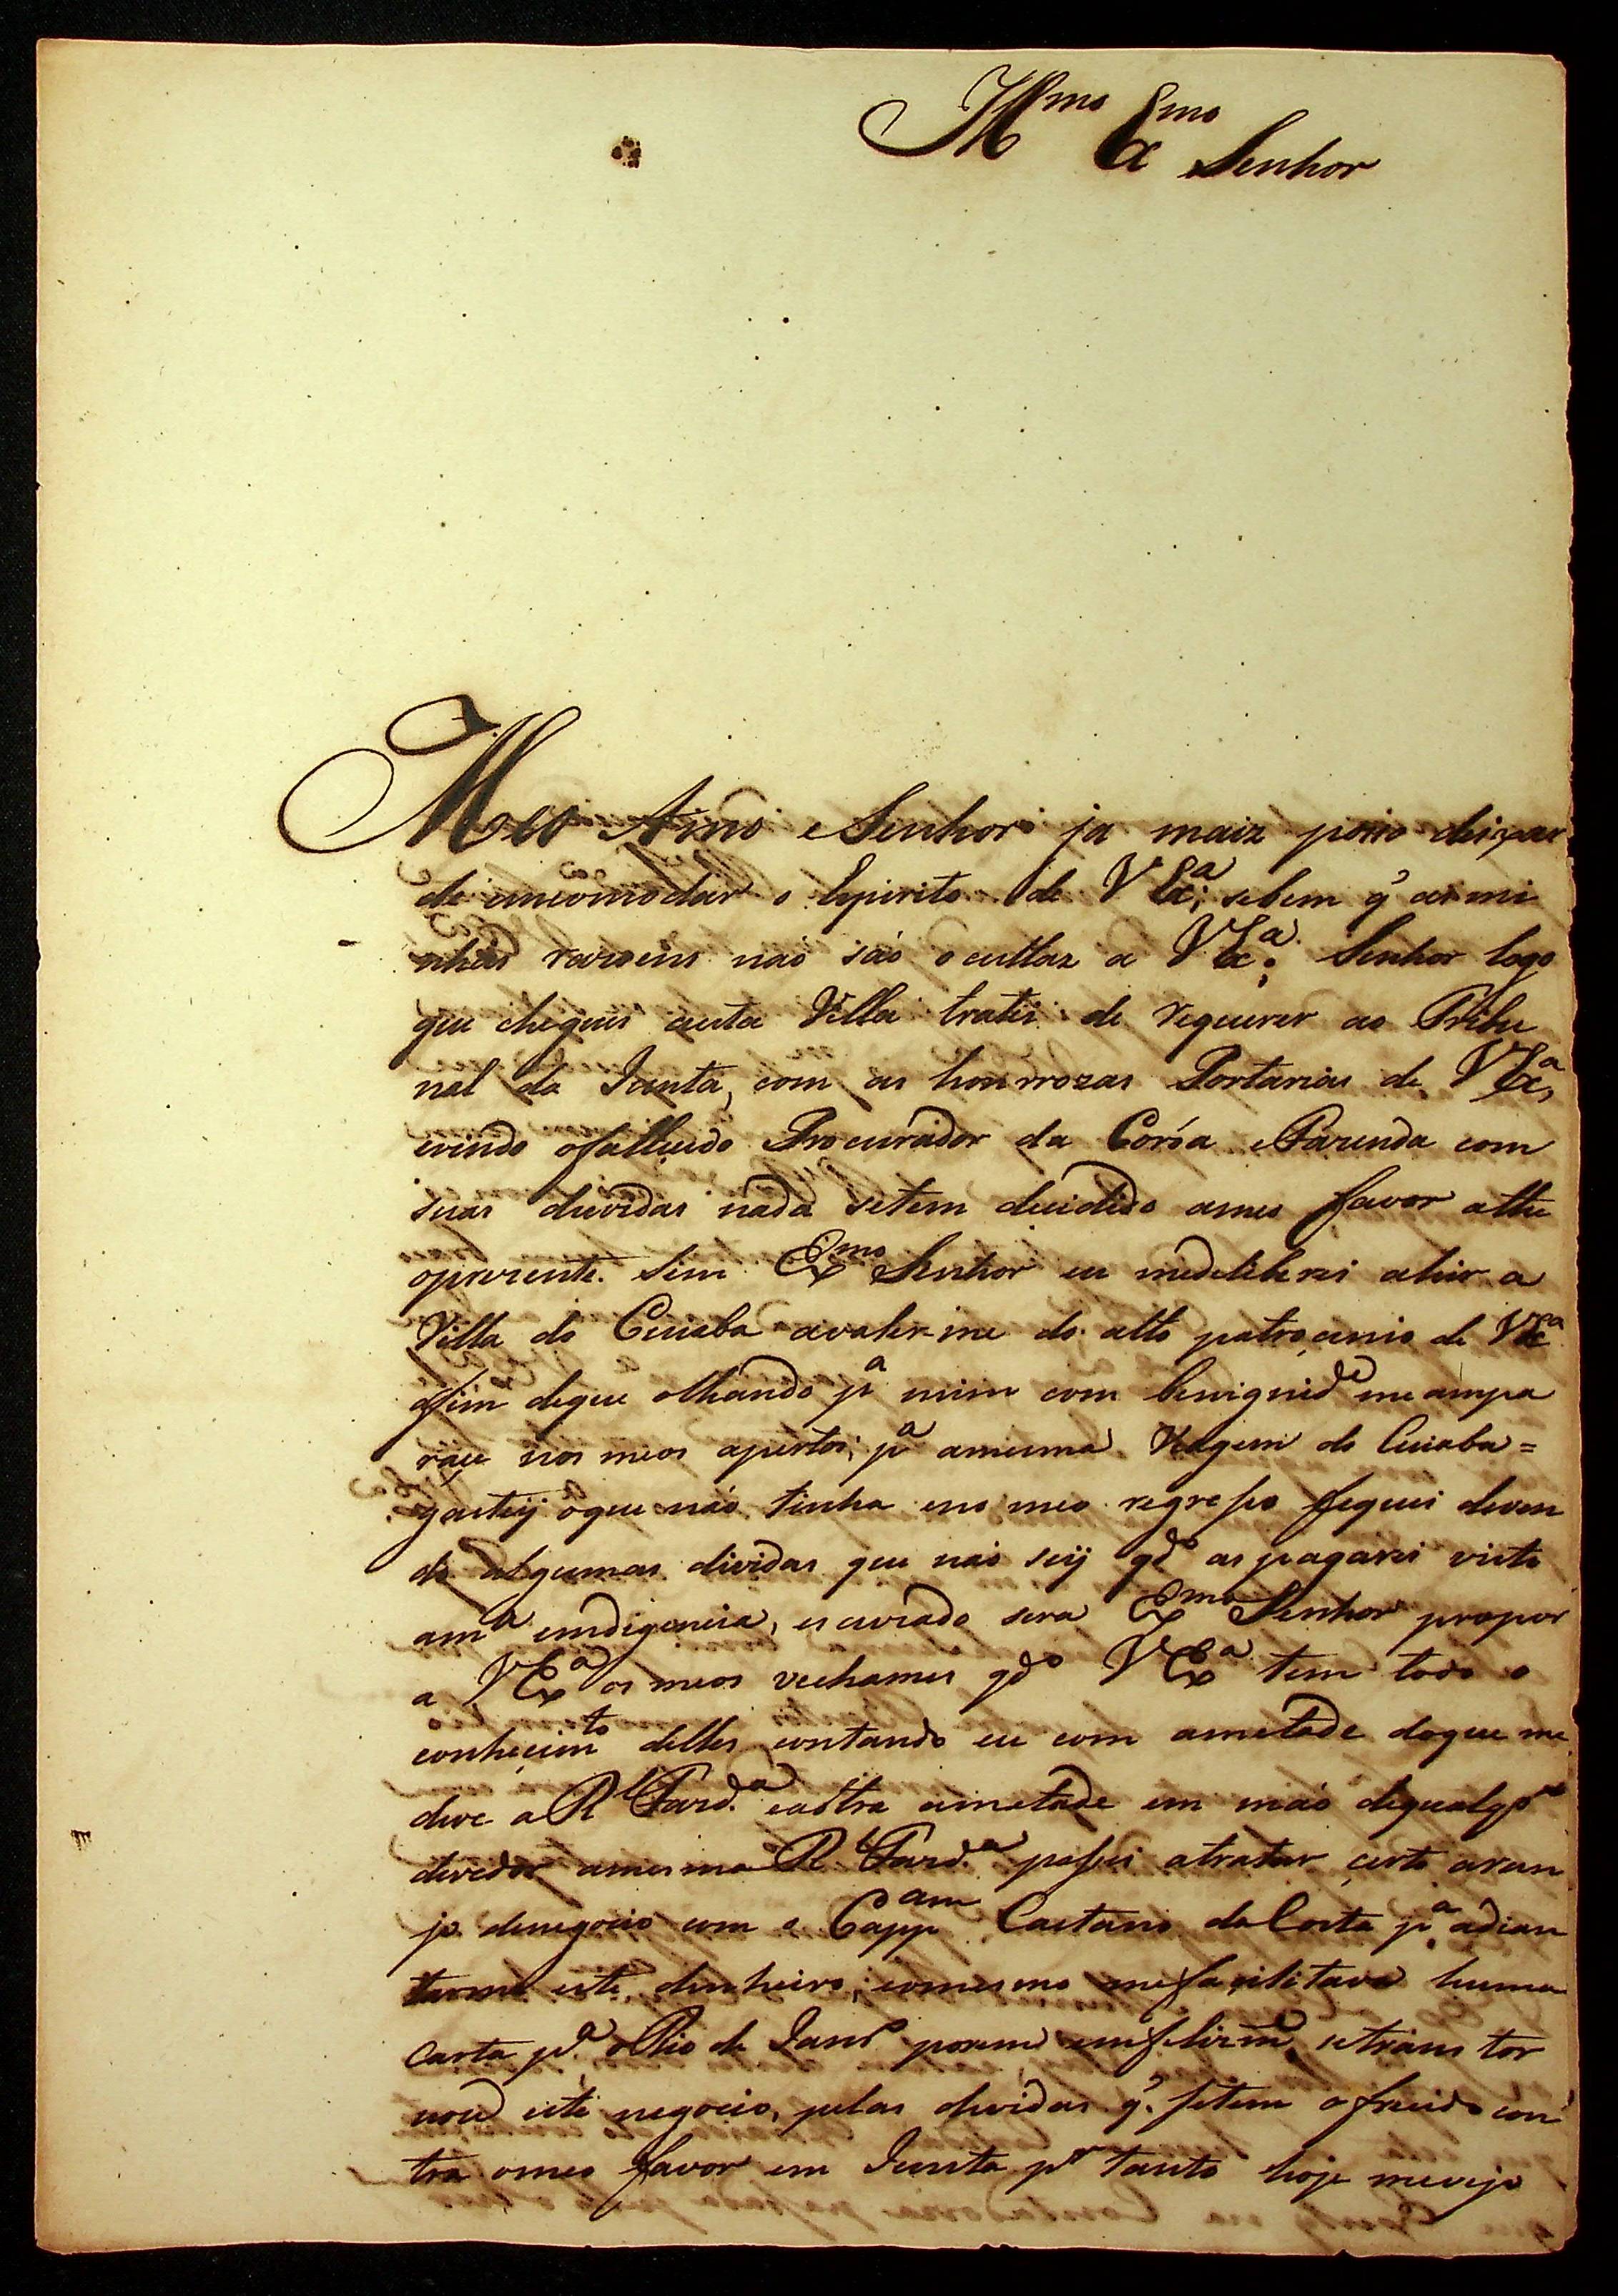 Illmo Exmo Senhor
Meo Amo e Senhor ja maiz posso deixar
de imcomodar o Espirito de VExa; sebem q̃ as mi
nhas razoens naó saó ocultaz a VExa. Senhor logo
que cheguei aesta Villa tratei de requerer ao Tribu
nal da Junta, com as honrrozas Portarias de VExa,
evindo ofallecido Procurador da Coróa eFazenda com
suas duvidas nada setem decidido ameo favor athe
oprezente. Sim Exmo Senhor eu medeliberei ahir a
Villa do Cuiaba avalerme do alto patrocinio de VExa
afim deque olhando pa mim com benignide meampa
race nos meos apertos; pa amesma Viagem do Cuiaba=
gasteij oque naó tinha eno meo regresso fiquei deven
do algumas dividas que naó seij qdo as pagarei visto
ama emdigencia, escuzado sera Exmo Senhor propor
a VExa os meos vechames qdo VExa tem todo o
conhecimto delles, contando eu com ametade doque me
deve a Rl Fazda. eaoutra ametade em maó dequalqr
devedor amesma Rl Fazda. passei atratar certo aran
jo denegocio com o Cappam Caetano da Costa pa. adian
tarme este dinheiro; eomesmo mefacilitava huma
Carta pa. oRio de Janro porem emfelizme setrans tor
nou este negocio, pelas duvidas q̃. setem ofrecido con
tra omeo favor em Junta pr tanto hoje mevejo